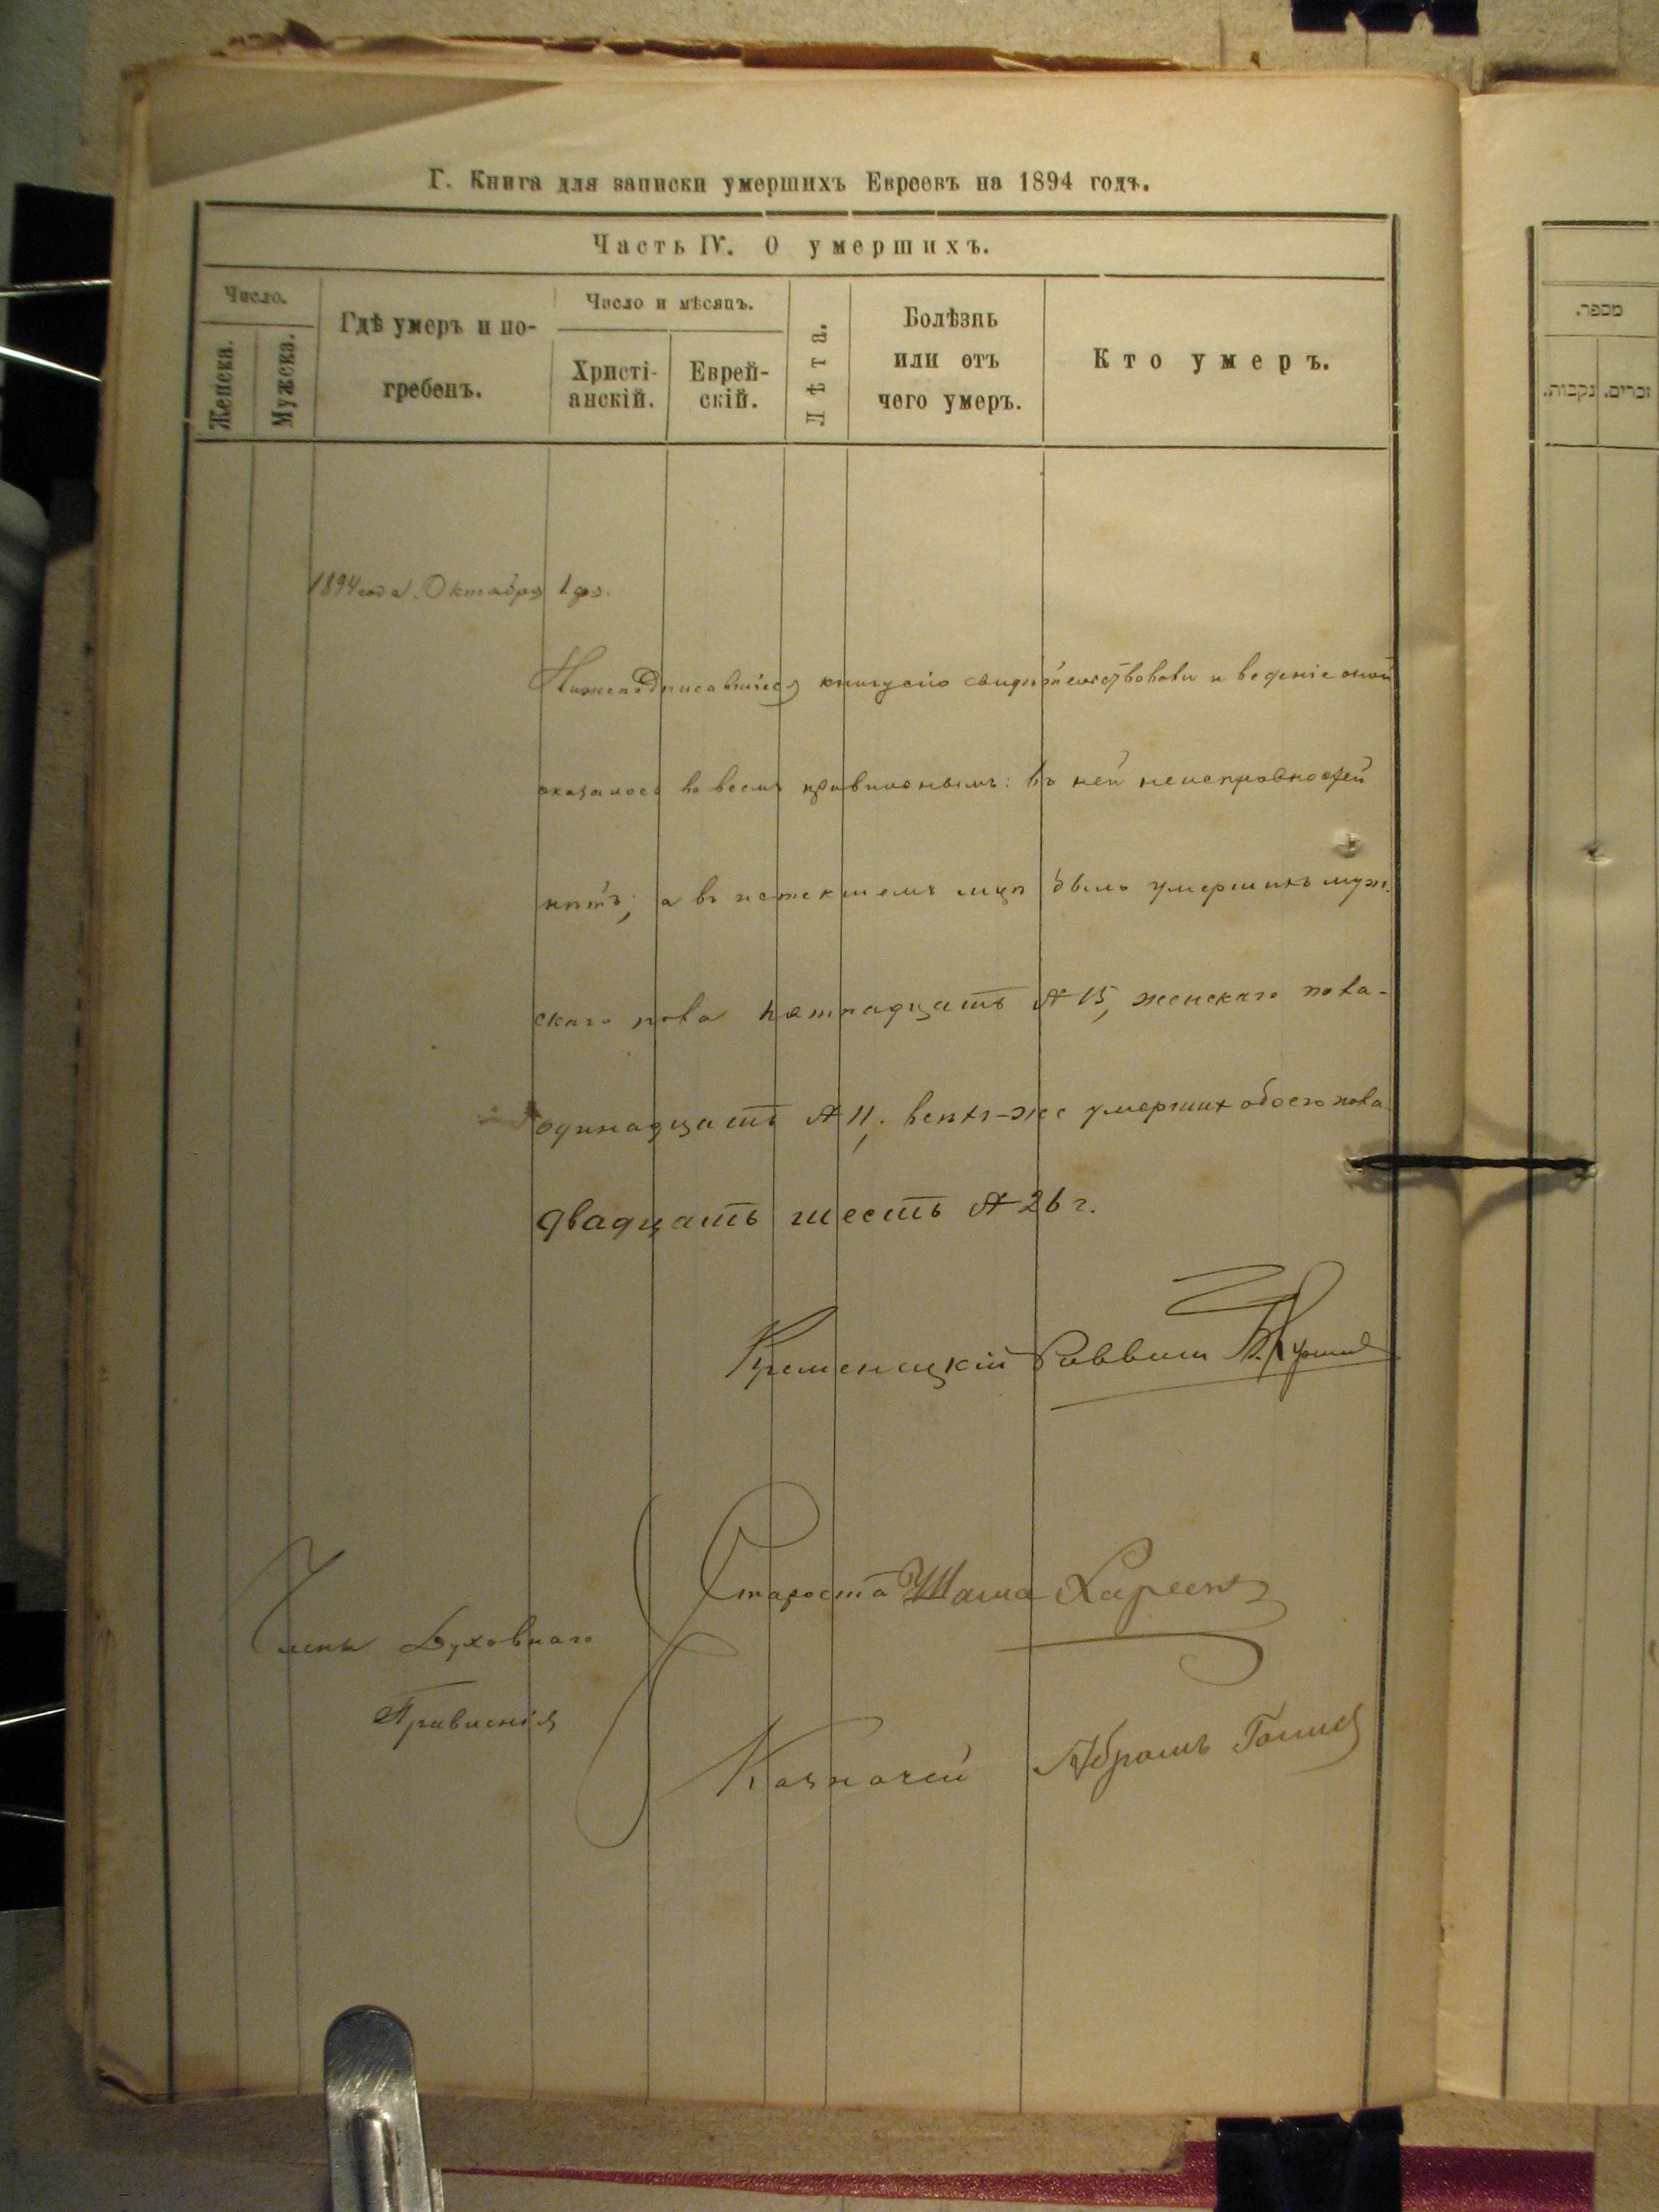 Г. Книга для записки умершихъ Евреевъ на 1894 годъ.
Часть IV. О умершихъ.
Число.
Женска.
Мужеска.
Гдѣ умеръ и по-
гребенъ.
Число и мѣсяцъ.
Христі-
анскій.
Еврей-
скій.
Лѣта.
Болѣзнь
или отъ
чего умеръ.
Кто умеръ.
מספר.
נקבות.
זכרים.
1894 года. Октября 1 дня.
Нижеподписавшіеся книгу сію свидѣтельствовали и веденіе оной
оказалось во всемъ правильнымъ: въ ней неисправностей
нѣтъ; а въ истекшемъ мцѣ было умершихъ муж.
скаго пола пятнадцать № 15, женскаго пола-
одинадцать № 11, всѣхъ-же умершихъ обоего пола
двадцать шесть № 26 г.
Кременецкій Раввинъ
Староста
Члены Духовнаго
Правленія
Казначей Абрамъ